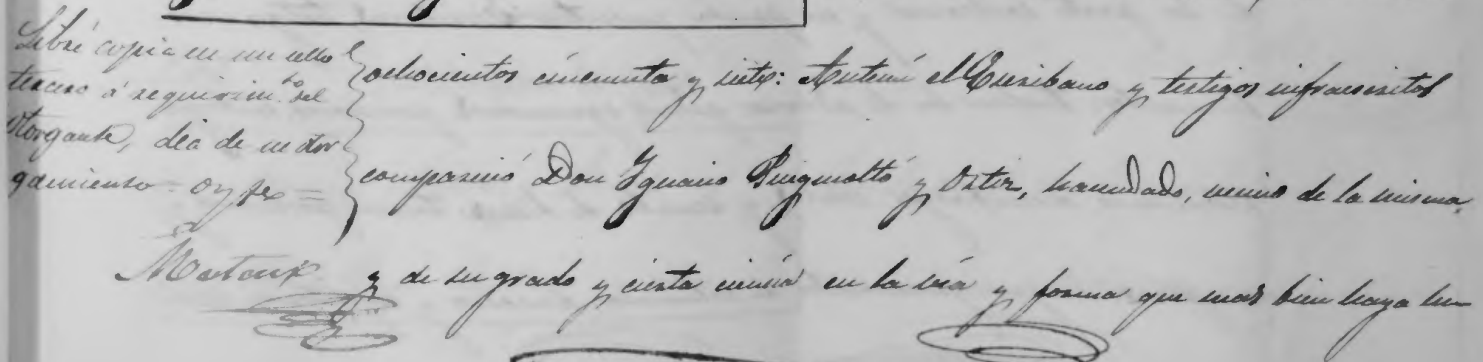 Libré copia en un sello
tercero á requirim.to del
otorgante, dia de su otor
gamiento = Doy fe =
ochocientos cincuenta y siete: Antemi el Escribano y testigos infraescritos
compareció Don Ygnacio Puigmoltó y Ortiz, hacendado, vecino de la misma,
y de su grado y cierta ciencia en la via y forma que mas bien haya lu